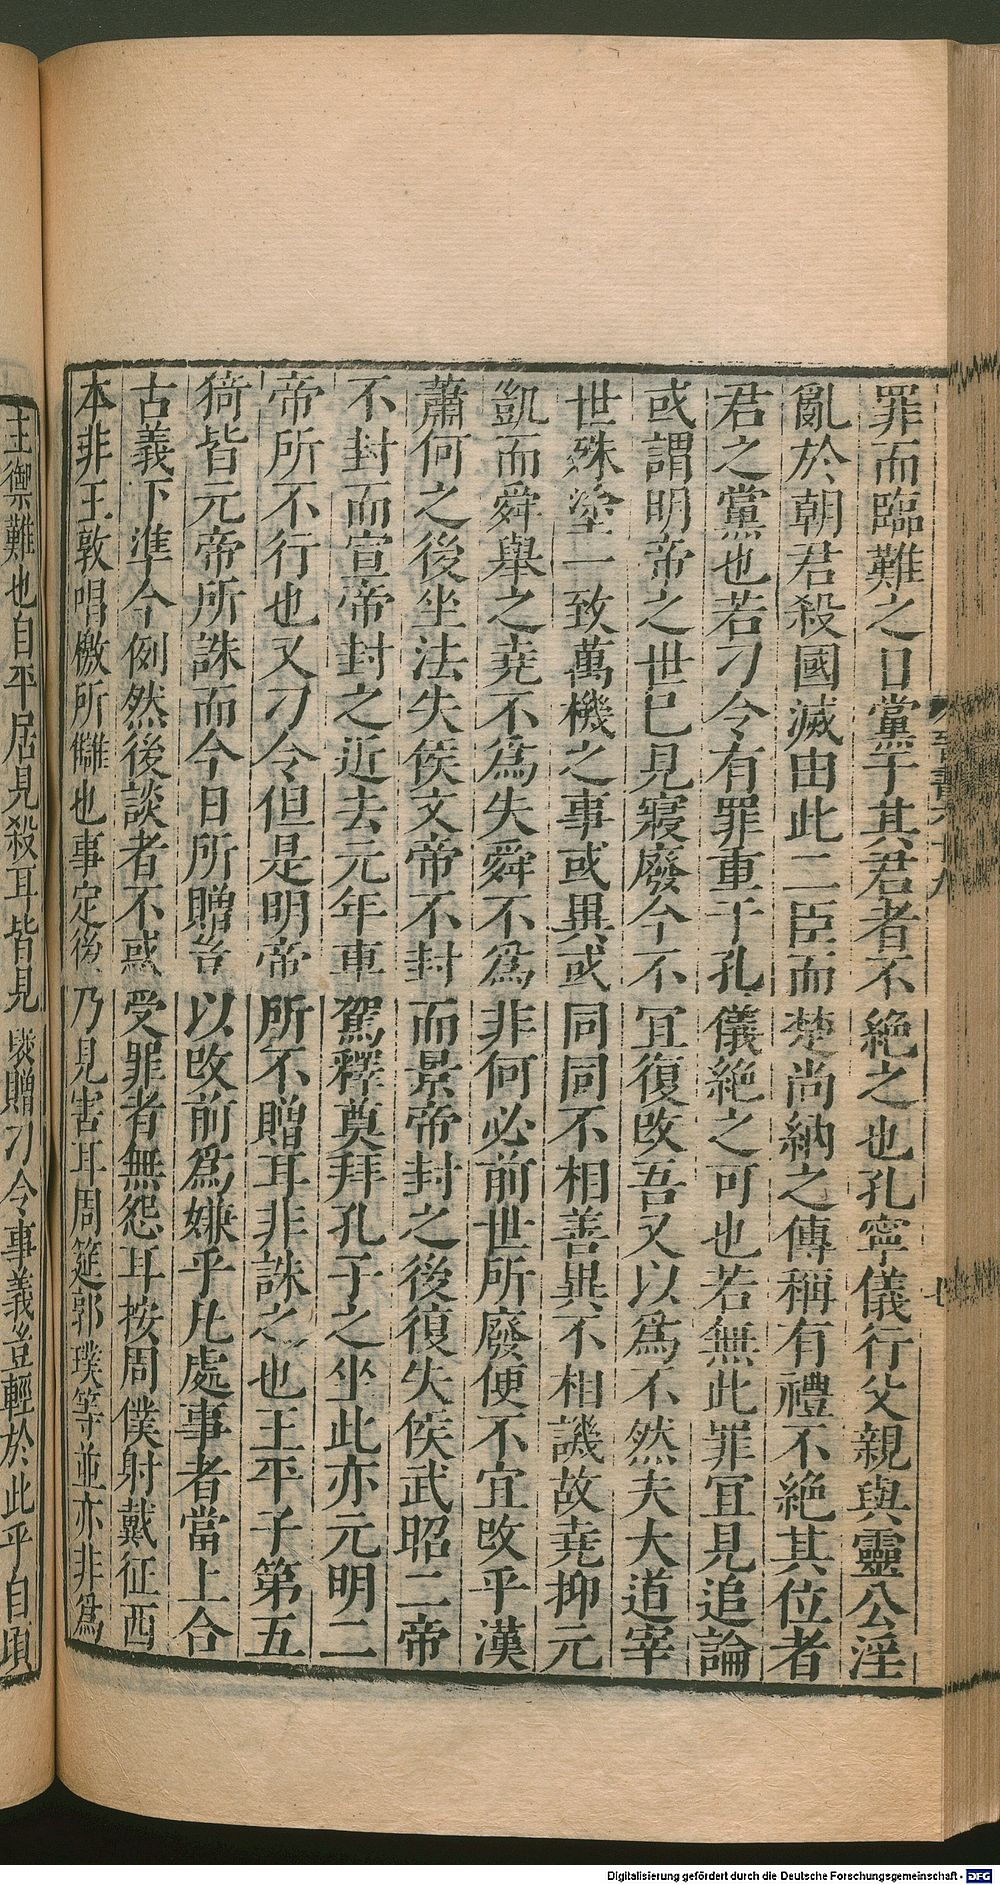 罪而臨難之日黨于其君者不絶之也孔寧儀行父親與靈公淫
亂於朝君殺國滅由此二臣而楚尚納之傳稱有禮不絶其位者
君之黨也若刁令有罪重于孔儀絶之可也若無此罪冝見追論
或謂明帝之世已見寢廢今不冝復改吾又以爲不然夫大道宰
世殊塗一致萬機之事或異或同同不相善異不相譏故堯抑元
凱而舜舉之堯不爲失舜不爲非何必前世所廢便不宜改乎漢
蕭何之後坐法失侯文帝不封而景帝封之後復失侯武昭二帝
不封而宣帝封之近去元年車駕釋奠拜孔子之坐此亦元明二
帝所不行也又刁令但是明帝所不贈耳非誅之也王平子第五
猗皆元帝所誅而今日所贈豈以改前爲嫌乎凡處事者當上合
古義下準今例然後談者不惑受罪者無怨耳按周僕射戴征西
本非王敦唱檄所讎也事定後乃見害耳周筵郭璞等並亦非爲
主禦難也自平居見殺耳皆見襃贈刁令事義豈輕於此乎自頃
晉書六十九
Digitalisierung gefördert durch die Deutsche Forschungsgemeinschaft - DFG